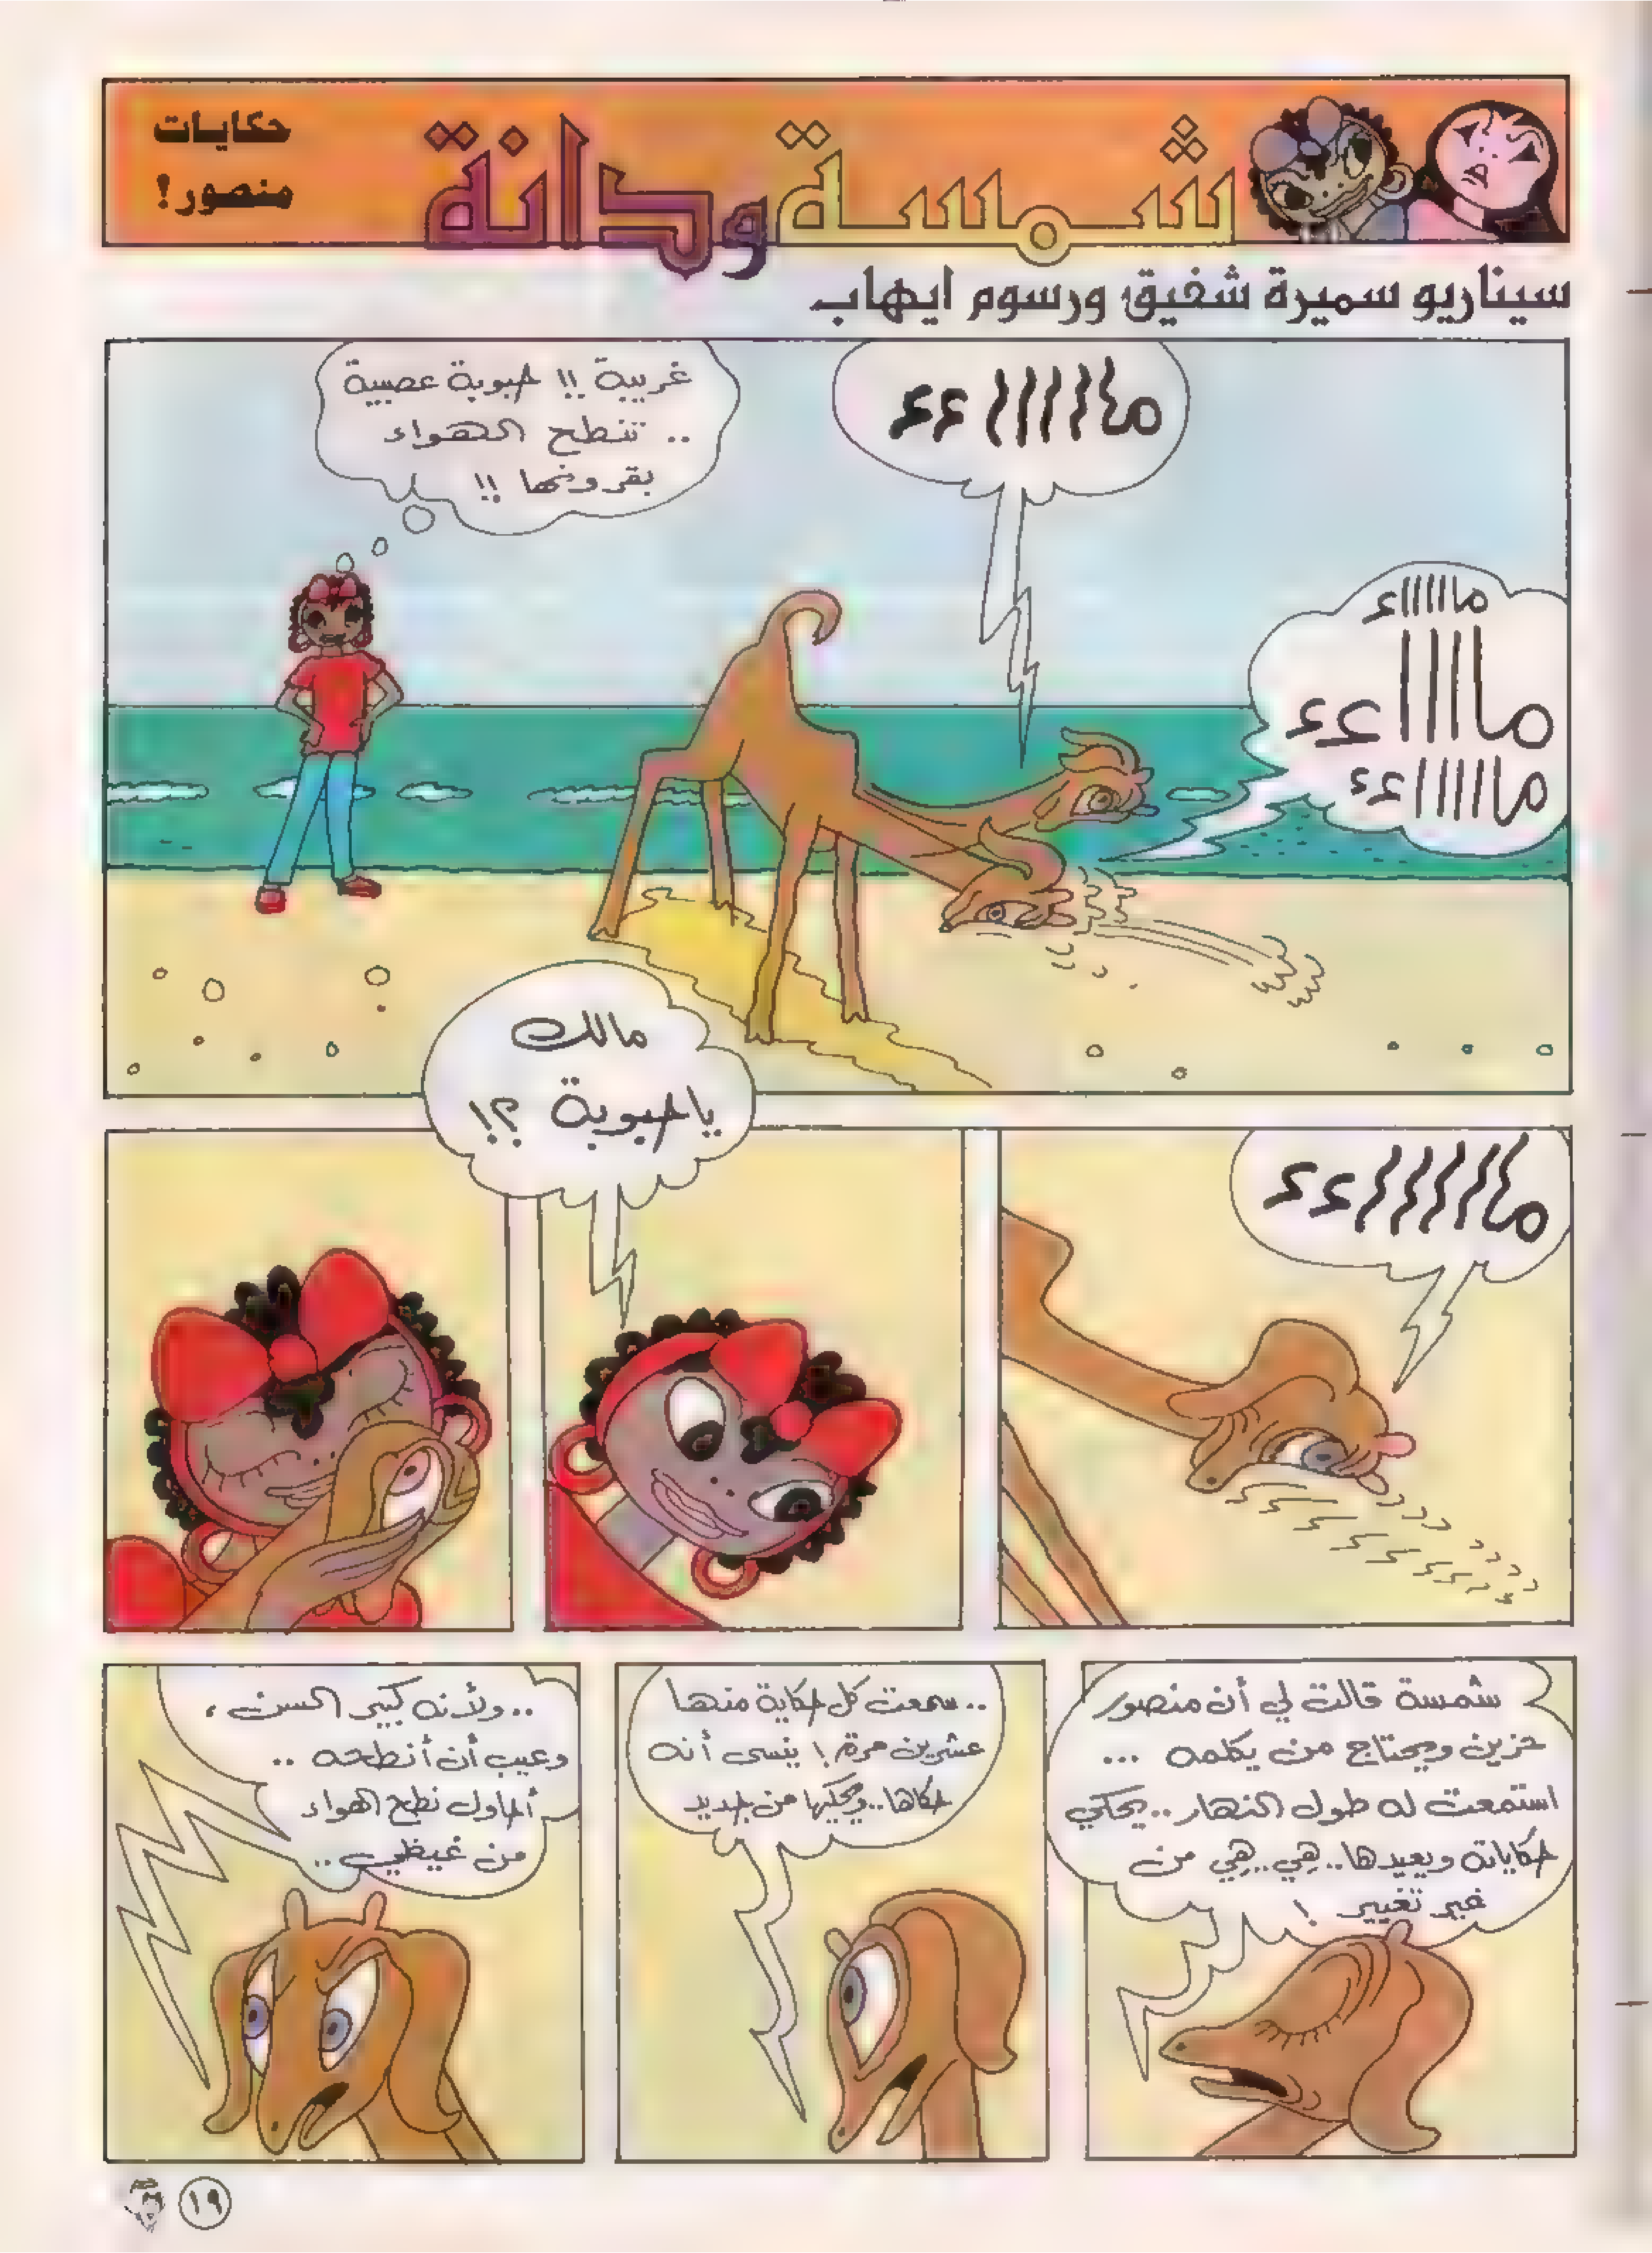 شمسة ودانة
حكايات
منصور؟
سيناريو سميرة شفيق ورسوم ايهاب
مااااااءء
مااااااء
ماااااءء
ماااااااءء
غريبة !! حبوبة عصبية
.. تنطح الهواء
بقرونها !!
مااااااااءء
مالك
ياحبوبة ؟!
شمسة قالت لي أن منصور
حزين ويحتاج من يكلمه ...
استمعت له طول النهار .. يحكي
حكاياته ويعيدها.. هِي .. هِي من
غير تغيير !
.. سمعت كل حكاية منها
عشرين مرة ! ينسى أنه
حكاها .. ويحكيها من جديد
.. ولأنه كبير السن ،
وعيب أن أنطحه ..
أحاول نطح الهواء
من غيظي ..
١٩